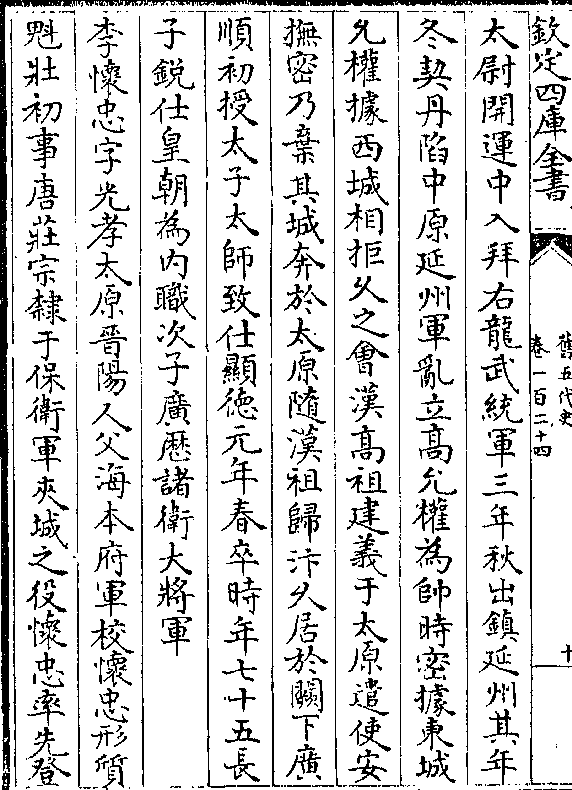 欽定四庫全書
舊五代史
卷一百二十四
十
太尉開運中入拜右龍武統軍三年秋出鎮延州其年
冬契丹陷中原延州軍亂立高允權為帥時密據東城
允權據西城相拒久之會漢高祖建義于太原遣使安
撫密乃棄其城奔於太原隨漢祖歸汴久居於闕下廣
順初授太子太師致仕顯徳元年春卒時年七十五長
子鋭仕皇朝為内職次子廣歴諸衛大將軍
李懷忠字光孝太原晉陽人父海本府軍校懷忠形質
魁壯初事唐莊宗隸于保衛軍夾城之役懷忠率先登